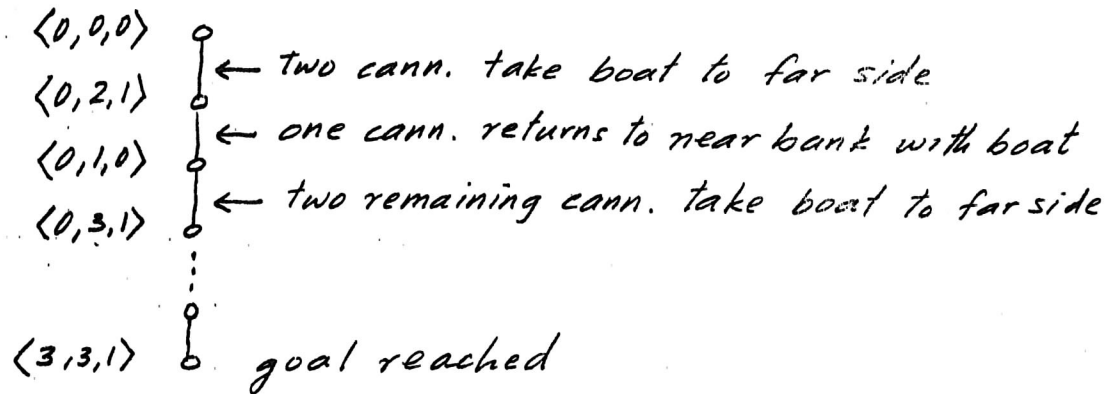 ⟨0,0,0⟩
← two cann. take boat to far side
⟨0,2,1⟩
← one cann. returns to near bank with boat
⟨0,1,0⟩
← two remaining cann. take boat to far side
⟨0,3,1⟩
⟨3,3,1⟩ goal reached